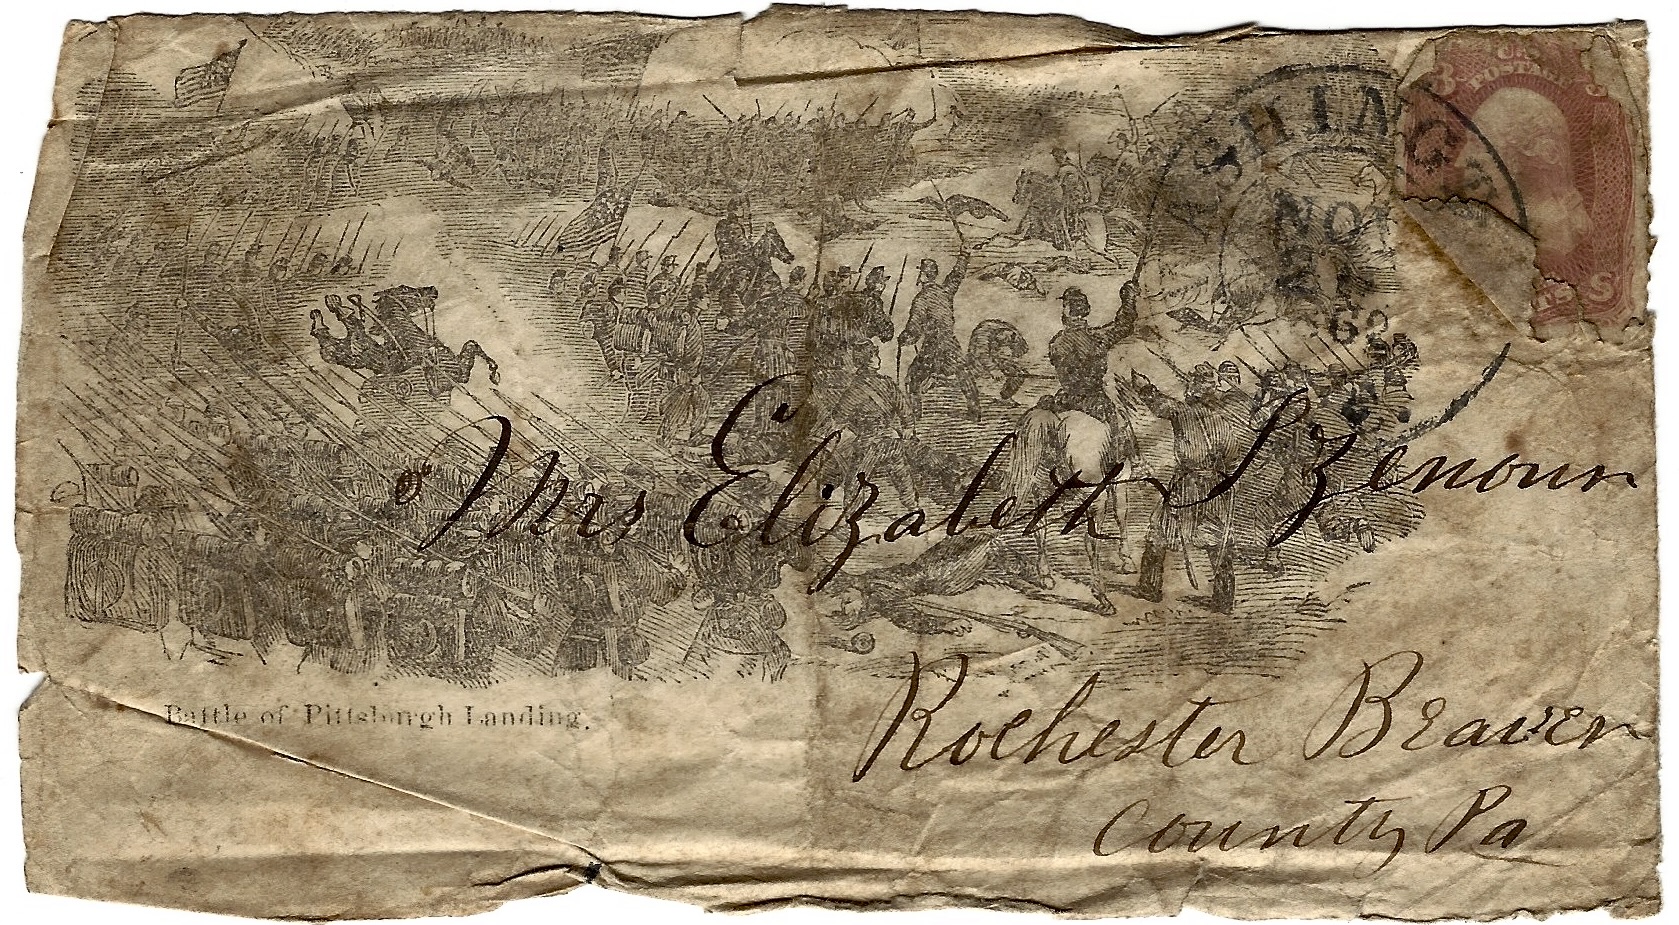 3 U.S.
POSTAGE
NOV
Mrs Elizabeth Izenour
Battle of Pittsburgh Landing.
Rochester Beaver
county Pa